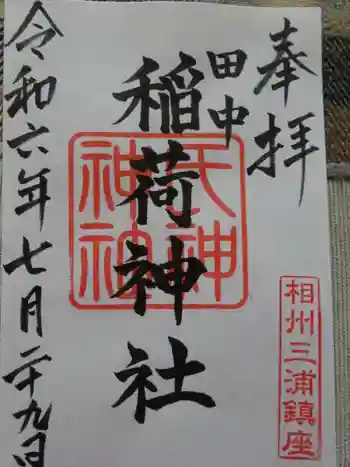 奉拝
田中
稲荷神社
令和六年七月二十九日
相州三浦鎮座
氏神
神社